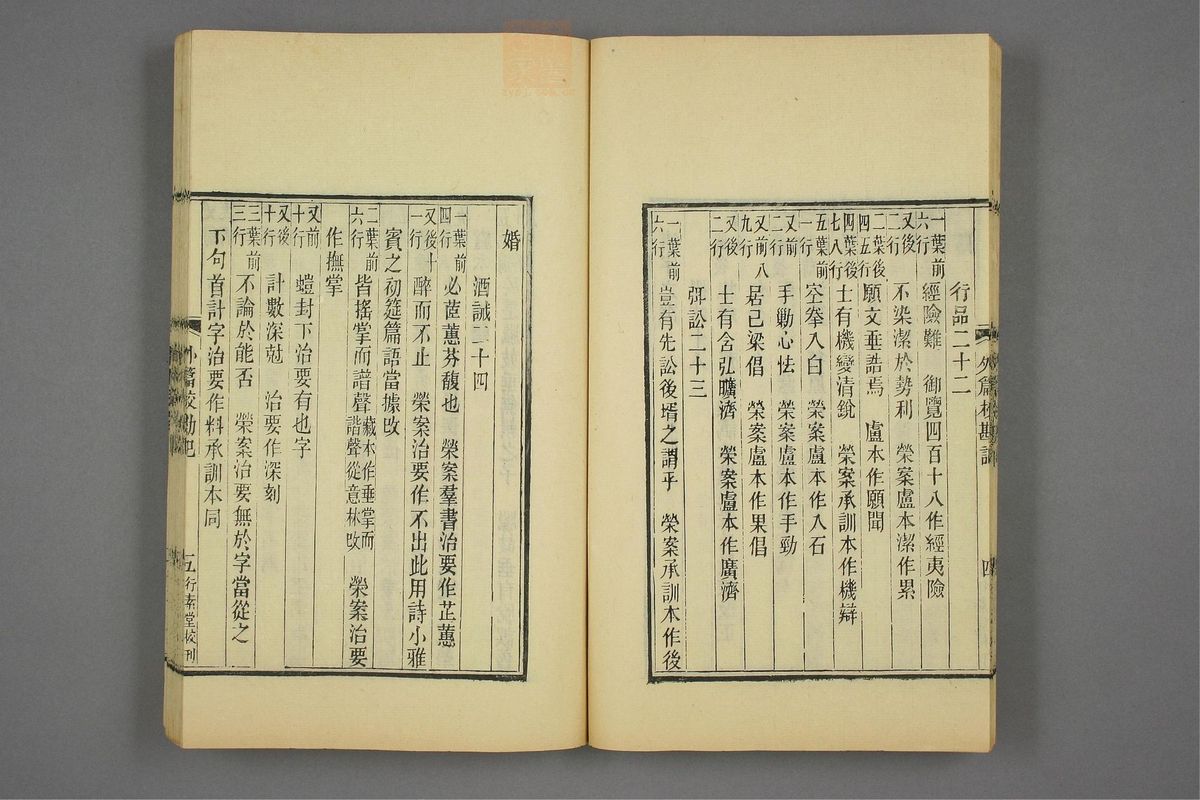 行品二十二
一葉前六行 經險難 御覽四百十八作經夷險
又後二行 不染潔於勢利 榮案盧本潔作累
二葉後四五行 願文垂誥焉 盧本作願聞
四葉後七八行 士有機變清銳 榮案承訓本作機辯
五葉前一行 空拳入白 榮案盧本作入石
又前二行 手勦心怯 榮案盧本作手勁
又前八九行 居己梁倡 榮案盧本作果倡
又後二行 士有含弘曠濟 榮案盧本作廣濟
弭訟二十三
一葉前六行 豈有先訟後壻之謂乎 榮案承訓本作後
外篇校勘記 四
婚
酒誡二十四
一葉前四行 必茝蕙芬馥也 榮案羣書治要作芷蕙
又後十一行 醉而不止 榮案治要作不出此用詩小雅
賓之初筵篇語當據改
二葉前六行 皆搖掌而譜聲 藏本作垂掌而諧聲從意林改 榮案治要
作撫掌
又前十行 螘封下治要有也字
又後十行 計數深尅 治要作深刻
三葉前三行 不論於能否 榮案治要無於字當從之
下句首計字治要作料承訓本同
外篇校勘記 五 行素堂校刊